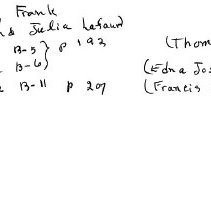 Frank
& Julia Lafaun
B-5 } p 193 (Thom
B-6 } (Edna Jos
B-11 p 207 (Francis